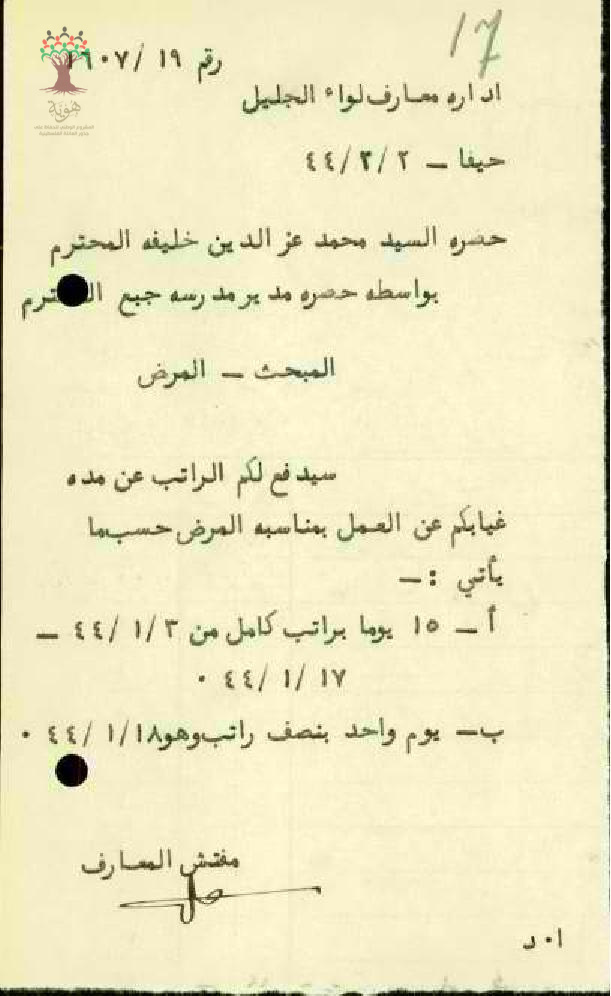 17
رقم ١٩ /١٦٠٧
هوية
اداره معارف لواء الجليل
حيفا – ٤٤/٢/٢
حضره السيد محمد عز الدين خليفه المحترم
بواسطه حضره مدير مدرسه جبع المحترم
المبحث – المرض
سيدفع لكم الراتب عن مده
غيابكم عن العمل بمناسبه المرض حسبما
يأتي :–
أ – ١٥ يوما براتب كامل من ٤٤/ ١/٣ –
٤٤/ ١/ ١٧ ٠
ب– يوم واحد بنصف راتب وهو ٤٤/ ١/١٨ ٠
مفتش المعارف
ا٠د